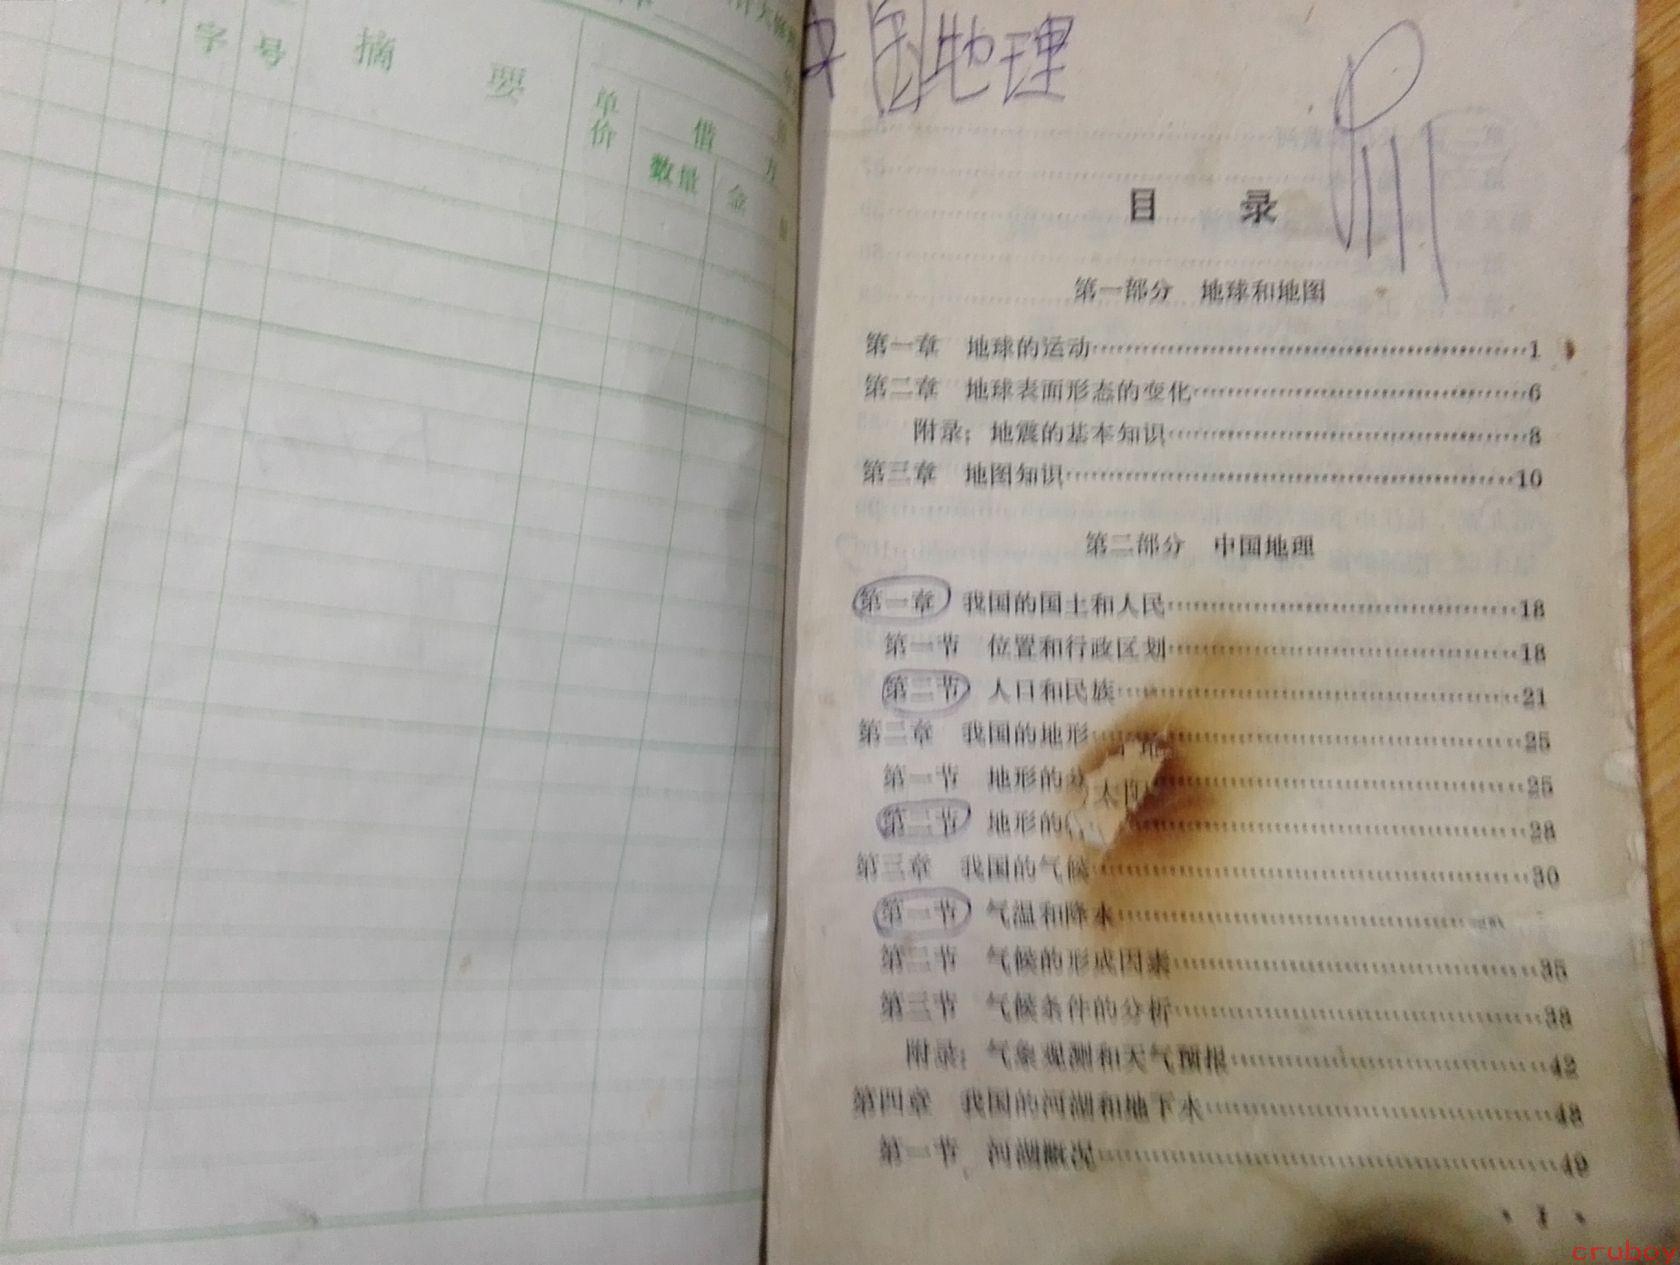 字 号 摘 要
单价 借 方
数量 金
中国地理
目 录
第一部分 地球和地图
第一章 地球的运动……1
第二章 地球表面形态的变化……6
附录：地震的基本知识……8
第三章 地图知识……10
第二部分 中国地理
第一章 我国的国土和人民……18
第一节 位置和行政区划……18
第二节 人口和民族……21
第二章 我国的地形……25
第一节 地形的……25
第二节 地形的……28
第三章 我国的气候……30
第一节 气温和降水……
第二节 气候的形成因素……35
第三节 气候条件的分析……38
附录：气象观测和天气预报……42
第四章 我国的河湖和地下水……48
第一节 河湖概况……49
· 1 ·
cruboy